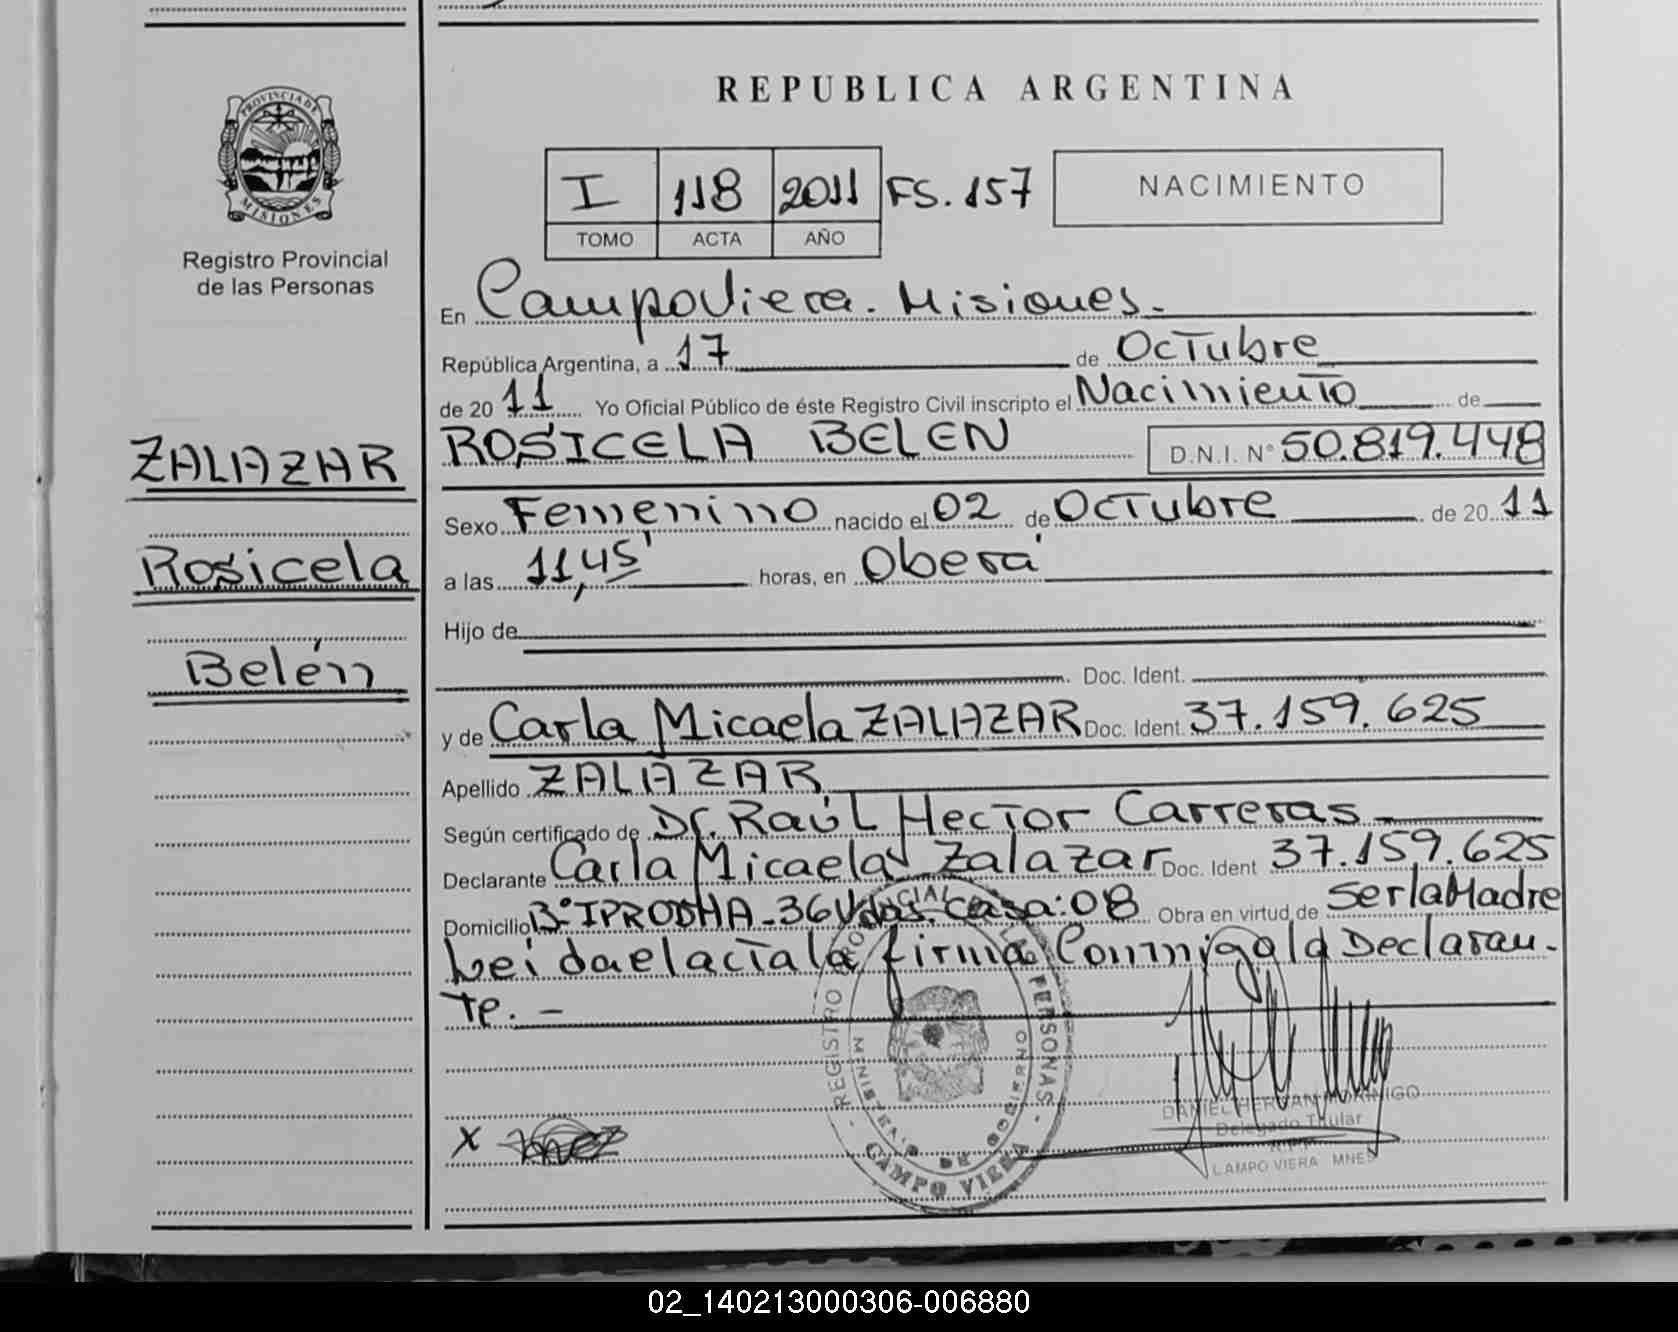 REPUBLICA ARGENTINA
PROVINCIA DE MISIONES
Registro Provincial
de las Personas
I 118 2011 FS. 157
TOMO ACTA AÑO
NACIMIENTO
En Campo Viera. Misiones.-
República Argentina, a 17 de Octubre
de 20 11 Yo Oficial Público de éste Registro Civil inscripto el Nacimiento de
ROSICELA BELEN D.N.I. N° 50.819.448
ZALAZAR
Rosicela
Belén
Sexo Femenino nacido el 02 de Octubre de 20 11
a las 11,45' horas, en Oberá
Hijo de
Doc. Ident.
y de Carla Micaela ZALAZAR Doc. Ident. 37.159.625
Apellido ZALAZAR
Según certificado de Dr. Raúl Hector Carreras
Declarante Carla Micaela Zalazar Doc. Ident 37.159.625
Domicilio B° IPRODHA - 36 Vdas. Casa: 08 Obra en virtud de ser la Madre
Leída el acta la firma Conmigo la Declaran-
te. -
X
REGISTRO PROVINCIAL DE LAS PERSONAS -
MINISTERIO DE GOBIERNO
CAMPO VIERA
DANIEL HERNAN MORINIGO
Delegado Titular
CAMPO VIERA MNES
02_140213000306-006880